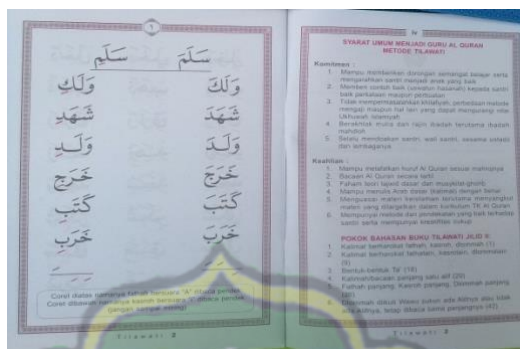 ٦
سَلَمَ سَلَمِ
وَلَكَ وَلَكِ
شَهَدَ شَهَدِ
وَلَدَ وَلَدِ
خَرَجَ خَرَجِ
كَتَبَ كَتَبِ
خَرَبَ خَرَبِ
Coret diatas namanya fathah bersuara "A" dibaca pendek
Coret dibawah namanya kasroh bersuara "I" dibaca pendek
(jangan sampai miring)
Tilawati 2
iv
SYARAT UMUM MENJADI GURU AL QURAN
METODE TILAWATI
Komitmen :
1. Mampu memberikan dorongan semangat belajar serta
mengarahkan santri menjadi anak yang baik
2. Memberi contoh baik (uswatun hasanah) kepada santri
baik perkataan maupun perbuatan
3. Tidak mempermasalahkan khilafiyah, perbedaan metode
mengaji maupun hal lain yang dapat mengurangi nilai
Ukhuwah Islamiyah
4. Berakhlak mulia dan rajin ibadah terutama ibadah
mahdloh
5. Selalu mendoakan santri, wali santri, sesama ustadz
dan lembaganya
Keahlian :
1. Mampu melafalkan huruf Al Quran sesuai
2. Bacaan Al Quran secara tartil
3. Faham teori tajwid dasar dan musykilat-ghorib
4. Mampu menulis Arab dasar (kalimat) dengan benar
5. Menguasai materi keislaman terutama menyangkut
materi yang ditargetkan dalam kurikulum TK Al Quran
6. Mempunyai metode dan pendekatan yang baik terhadap
santri serta mempunyai kreatifitas cukup
POKOK BAHASAN BUKU TILAWATI JILID II
1. Kalimat berharokat fathah, kasroh, dlommah (1)
2. Kalimat berharokat fathatain, kasrotain, dlommatain
(9)
3. Bentuk-bentuk Ta' (18)
4. Kalimat/bacaan panjang satu alif (20)
5. Fathah panjang, Kasroh panjang, Dlommah panjang
6. Dlommah diikuti Wawu sukun ada Alifnya atau tidak
ada Alifnya, tetap dibaca sama panjangnya (42)
Tilawati 2